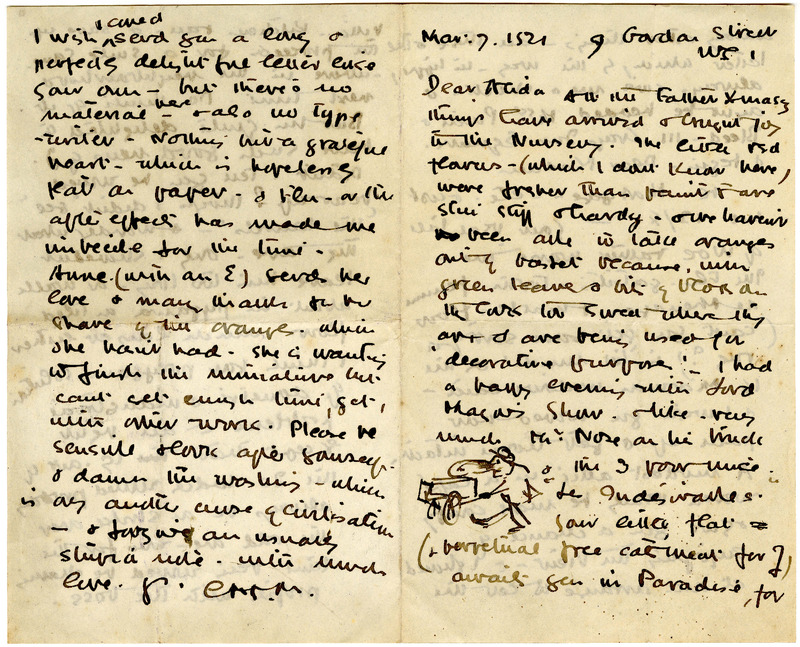 Mar. 7. 1921 9 Gordon Street
WC 1
Dear Alida All the Father Xmasy
things have arrived & brought joy
to the Nursery. The little red
flowers - (which I don't know here,)
were fresher than paint & are
still stiff & hardy - & we haven't
been able to take oranges
out of basket because, with
green leaves & bit of
the look too sweet where they
are & are being used for
'decorative purpose'! - I had
a happy evening with Lord
Show. & like very
much the Nose on his truck
& the 3 poor mice
Indésirables.
Your little flat =
(& perpetual free cat meat for J)
awaits you in Paradise, for
I wish I could send you a long &
perfectly delightful letter like
your own - but there's no
material here - & also no type
-writer - nothing but a grateful
heart - which is hopelessly
flat on paper - & Flu - or the
after effects has made me
imbecile for the time -
Anne. (with an E) sends her
love & many thanks for her
share of the oranges. which
she hasn't had - She is wanting
to finish the miniature but
cant get enough time, yet,
with other work. Please be
sensible & look after yourself -
& damn the washing - which
is ony another curse of civilisation
- & forgive an usually
stupid note. with much
love. yr. C.M.M.